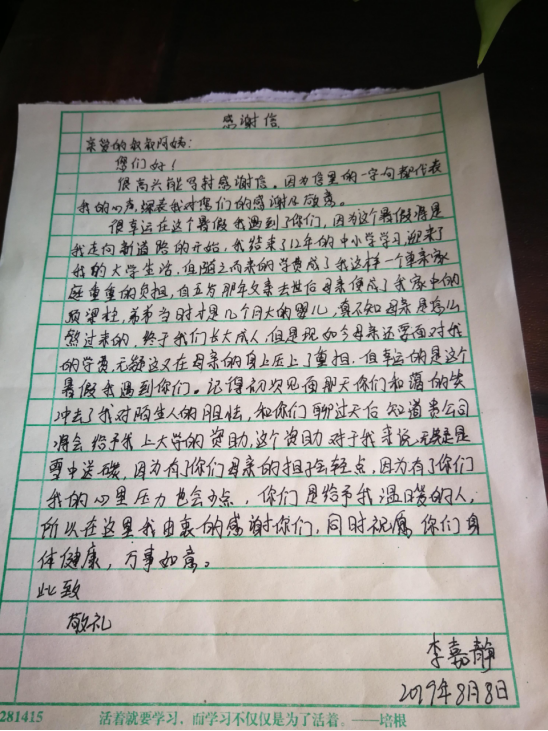 感谢信
亲爱的叔叔阿姨:
您们好!
很高兴能写封感谢信。因为信里的一字一句都代表
我的心声,深表我对您们的感谢及敬意。
很幸运在这个暑假我遇到了你们,因为这个暑假将是
我走向新道路的开始,我结束了12年的中小学学习,迎来了
我的大学生活,但随之而来的学费成了我这样一个单亲家
庭重重的负担,自五年那年父亲去世后母亲便成了我家中的
顶梁柱,弟弟当时才是几个月大的婴儿,真不知母亲是怎么
熬过来的,终于我们长大成人,但是现如今母亲还要面对我
的学费,无疑这又在母亲的身上压上了重担,但幸运的是这个
暑假我遇到你们。记得初次见面那天你们和蔼的笑
冲去了我对陌生人的胆怯,和你们聊过天后知道贵公司
将会给予我上大学的资助,这个资助对于我来说无疑是
雪中送碳,因为有了你们母亲的担子会轻点,因为有了你们
我的心里压力也会少点,你们是给予我温暖的人,
所以在这里我由衷的感谢你们,同时祝愿你们身
体健康,万事如意。
此致
敬礼
李嘉静
2019年8月8日
281415 活着就要学习,而学习不仅仅是为了活着。——培根